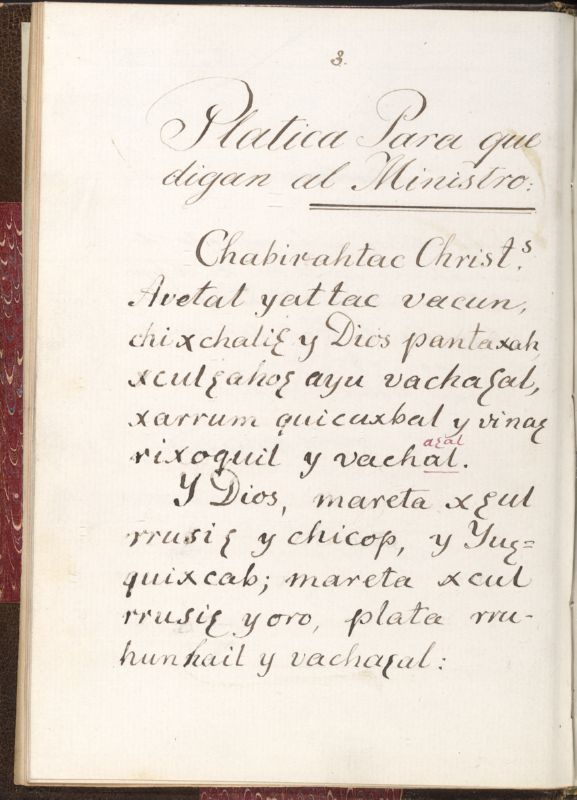 3.
Platica Para que
digan al Ministro:
Chabirahtac Christ.s
Avetal yattac vacun,
chixchaliꜫ y Dios pantaxah,
xculꜫahoꜫ ayu vachaꜫal,
xarrum quicuxbal y vinaꜫ
aꜫal
rixoquil y vachal.
Y Dios, mareta xꜫul
rrusiꜫ y chicop, y Yuꜫ=
quixcab; mareta xcul
rrusiꜫ y oro, plata rru-
hunhail y vachaꜫal: